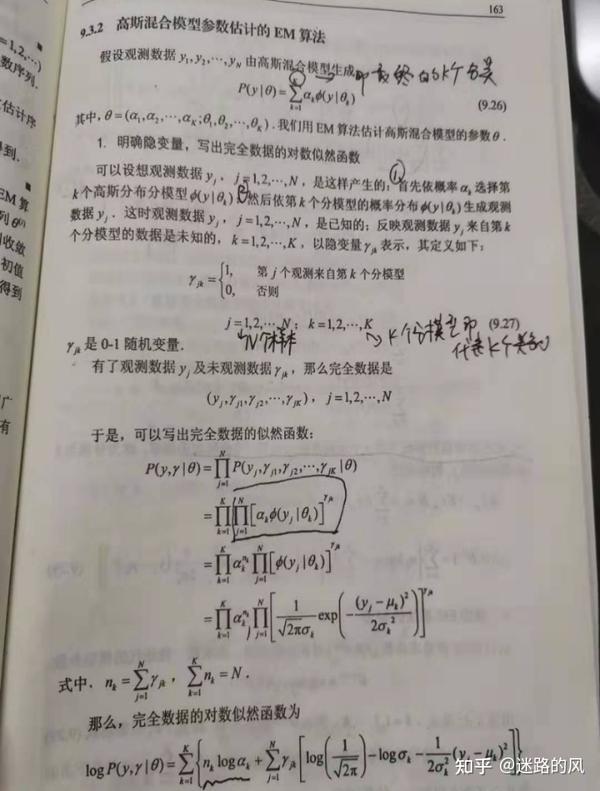 163
9.3.2 高斯混合模型参数估计的 EM 算法
假设观测数据 y₁, y₂, ⋯, y_N 由高斯混合模型生成,
P(y|θ) = ∑_{k=1}^{K} α_k φ(y|θ_k) (9.26)
其中, θ = (α₁, α₂, ⋯, α_K; θ₁, θ₂, ⋯, θ_K). 我们用 EM 算法估计高斯混合模型的参数 θ.
1. 明确隐变量,写出完全数据的对数似然函数
可以设想观测数据 y_j, j = 1,2,⋯,N, 是这样产生的: ① 首先依概率 α_k 选择第
k 个高斯分布分模型 φ(y|θ_k); ② 然后依第 k 个分模型的概率分布 φ(y|θ_k) 生成观测
数据 y_j. 这时观测数据 y_j, j = 1,2,⋯,N, 是已知的; 反映观测数据 y_j 来自第 k
个分模型的数据是未知的, k = 1,2,⋯,K, 以隐变量 γ_{jk} 表示, 其定义如下:
γ_{jk} = { 1, 第 j 个观测来自第 k 个分模型
0, 否则
j = 1,2,⋯,N; k = 1,2,⋯,K (9.27)
N个样本
K个分模型即
代表K个类别
γ_{jk} 是 0-1 随机变量.
有了观测数据 y_j 及未观测数据 γ_{jk}, 那么完全数据是
(y_j, γ_{j1}, γ_{j2}, ⋯, γ_{jK}), j = 1,2,⋯,N
于是, 可以写出完全数据的似然函数:
P(y,γ|θ) = ∏_{j=1}^{N} P(y_j, γ_{j1}, γ_{j2}, ⋯, γ_{jK}|θ)
= ∏_{k=1}^{K} ∏_{j=1}^{N} [α_k φ(y_j|θ_k)]^{γ_{jk}}
= ∏_{k=1}^{K} α_k^{n_k} ∏_{j=1}^{N} [φ(y_j|θ_k)]^{γ_{jk}}
= ∏_{k=1}^{K} α_k^{n_k} ∏_{j=1}^{N} [1/(√(2π)σ_k) exp(−(y_j − μ_k)²/(2σ_k²))]^{γ_{jk}}
式中, n_k = ∑_{j=1}^{N} γ_{jk}, ∑_{k=1}^{K} n_k = N.
那么, 完全数据的对数似然函数为
log P(y,γ|θ) = ∑_{k=1}^{K} { n_k log α_k + ∑_{j=1}^{N} γ_{jk} [log(1/√(2π)) − log σ_k − 1/(2σ_k²) (y_j − μ_k)²] }
知乎 @迷路的风